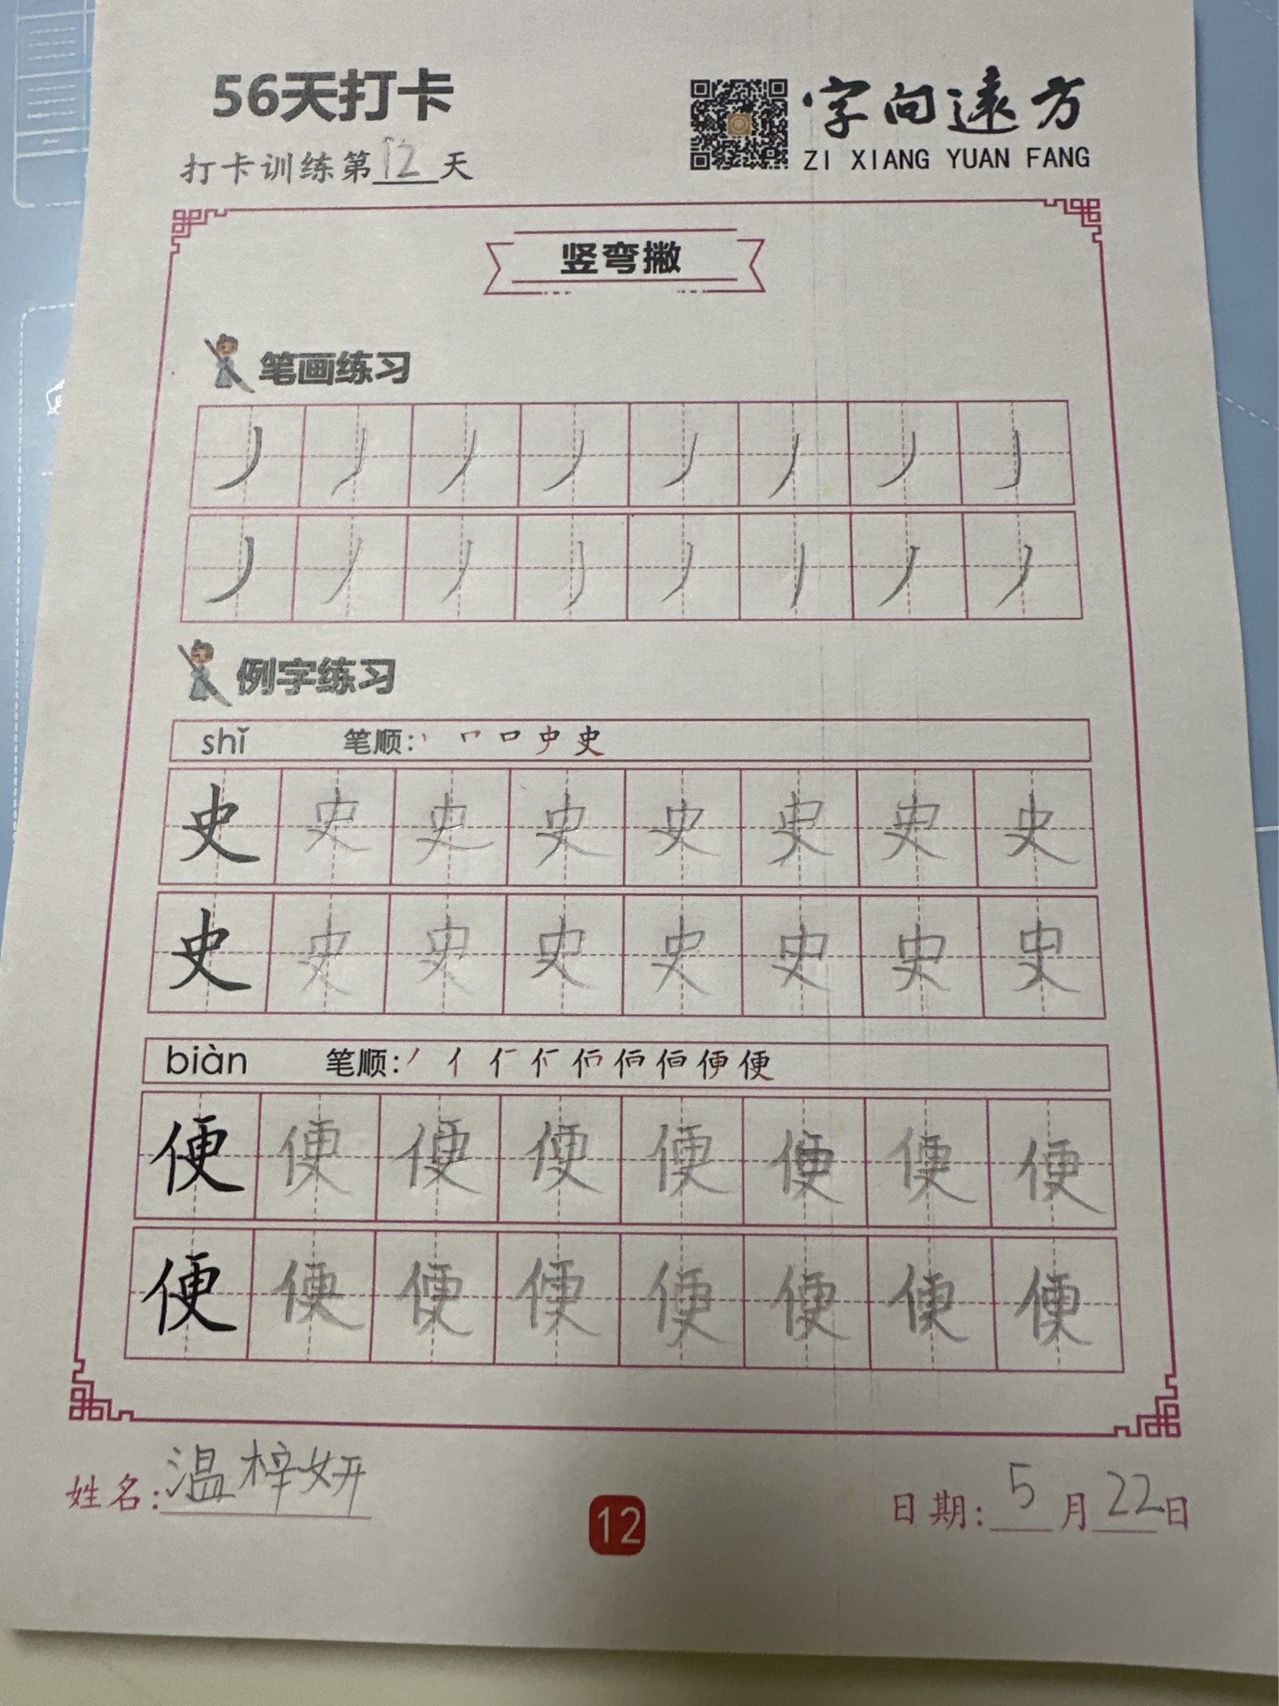 56天打卡
字向远方
ZI XIANG YUAN FANG
打卡训练第12天
竖弯撇
笔画练习
丿丿丿丿丿丿丿丿
丿丿丿丿丿丿丿丿
例字练习
shǐ 笔顺：丶 𠃍 口 史 史
史史史史史史史史
史史史史史史史史
biàn 笔顺：丿 亻 便
便便便便便便便便
便便便便便便便便
姓名：温梓妍
12
日期：5月22日